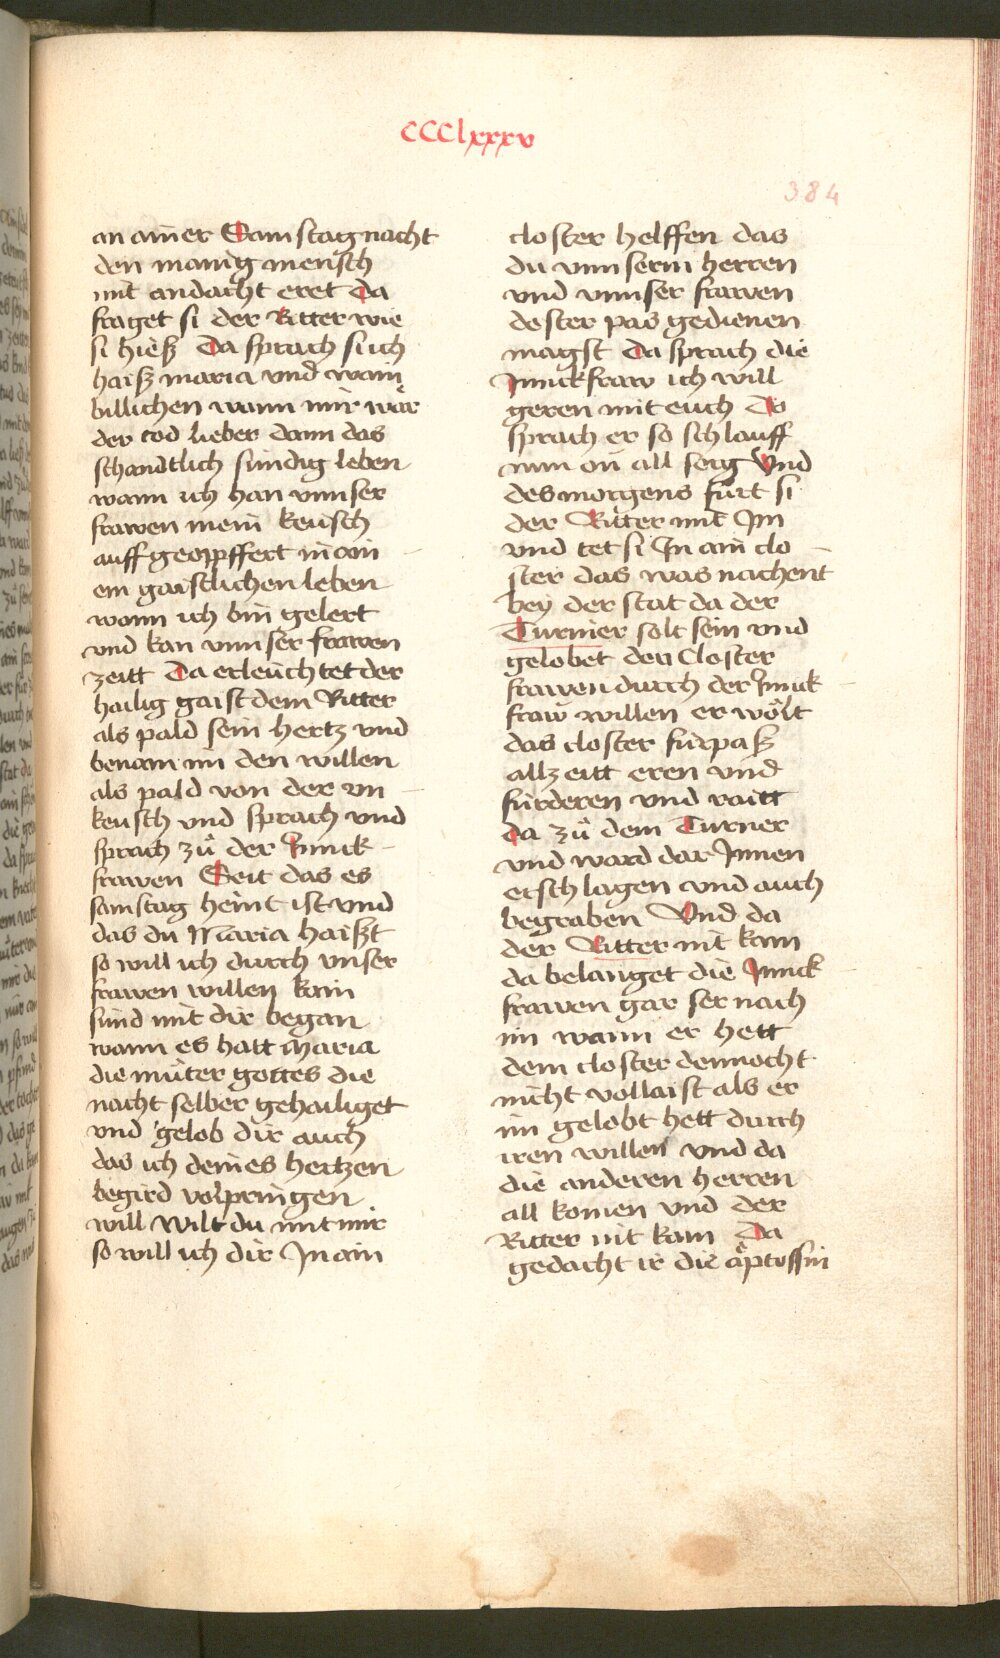 CCClxxxv
384
an ainer Samstag nacht
den manig mensch
mit andacht eret Da
fraget si der Ritter wie
si hieß Da sprach si ich
haiß maria vnd wain
billichen wann mir wår
der tod lieber dann das
schandtlich sündig leben
wann ich han vnnser
frawen mein keusch
auff geopffert in ain
em gaistlichen leben
wann ich bin gelert
vnd kan vnnser frawen
zeitt Da erleuchtet der
hailig gaist dem Ritter
als pald sein hertz vnd
benam im den willen
als pald von der vn
keusch vnd sprach vnd
sprach zů der Junck
frawen Seit das es
samstag heint ist vnd
das du Maria haißt
so will ich durch vnser
frawen willen kain
sünd mit dir began
wann es hatt maria
die můter gottes die
nacht selber gehailiget
vnd gelob dir auch
das ich deines hertzen
begird volpringen
will Wilt du mit mir
so will ich dir In ain
closter helffen das
du vnnserm herren
vnd vnnser frawen
dester pas gedienen
magst Da sprach die
Junckfraw ich will
geren mit euch Do
sprach er so schlauff
nun on all sorg Vnd
des morgens fürt si
der Ritter mit Im
vnd tet si In ain clo
ster das was nachent
bey der stat da der
Turnier solt sein vnd
gelobet den Closter
frawen durch der Junck
fraw willen er wölt
das closter fürpaß
allzeitt eren vnd
fürderen vnd raitt
da zů dem Turner
vnd ward dar Innen
erschlagen vnd auch
begraben Vnd da
der Ritter nit kam
da belanget die Junck
frawen gar ser nach
im wann er hett
dem closter dennocht
nicht vollaist als er
im gelobt hett durch
iren willen vnd da
die anderen herren
all komen vnd der
Ritter nit kam Da
gedacht ir die åptossin